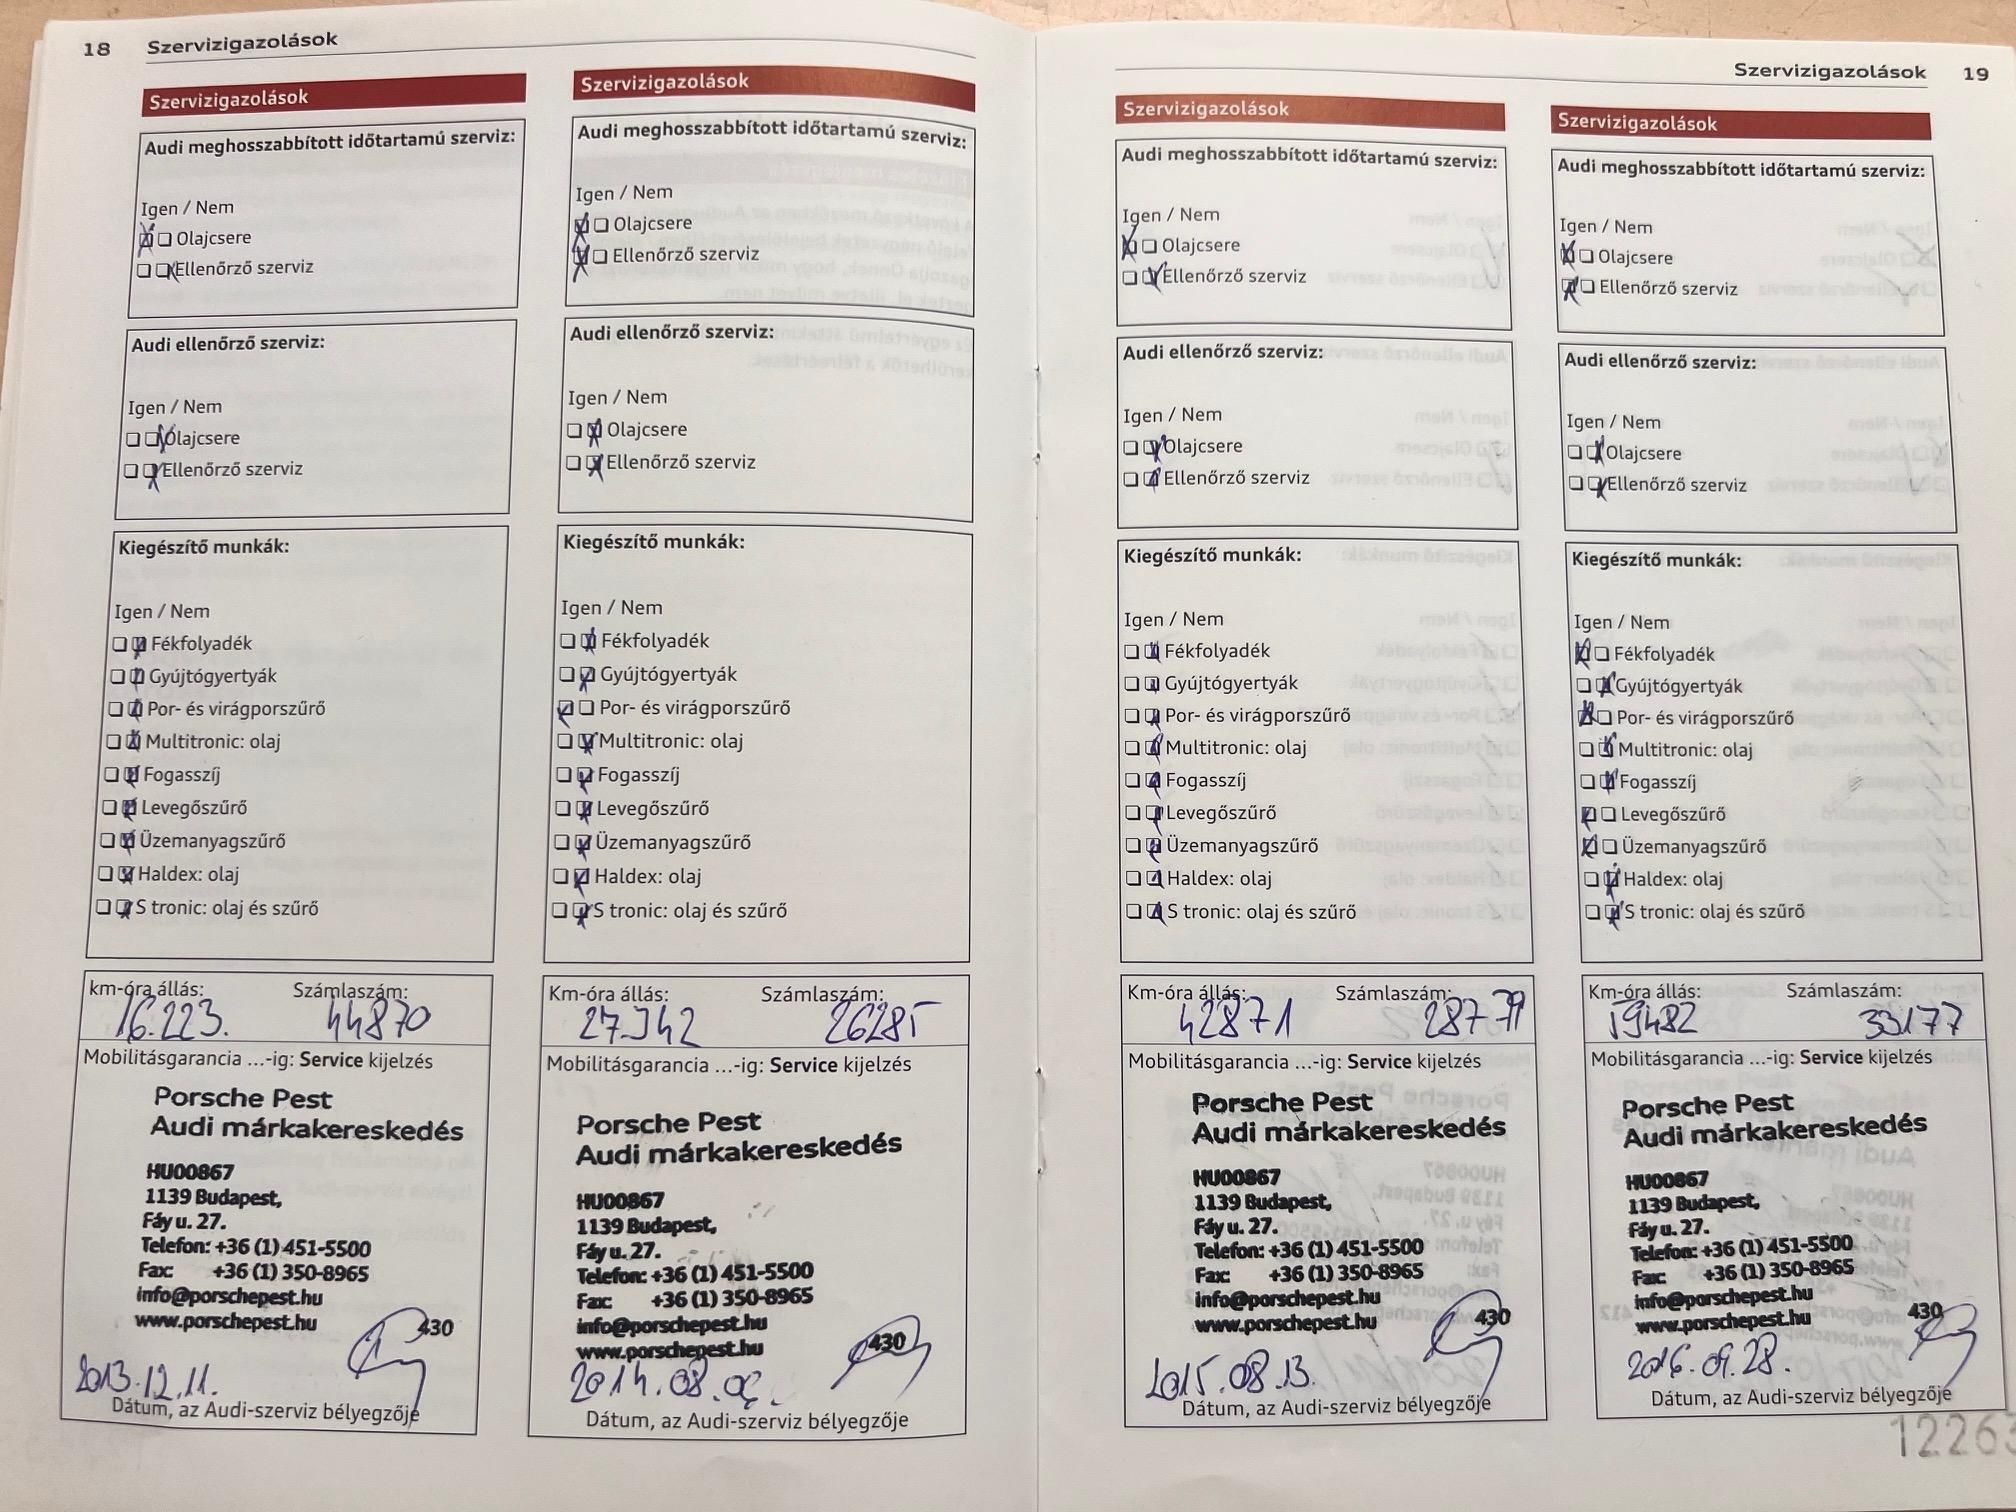 18 Szervizigazolások
Szervizigazolások
Audi meghosszabbított időtartamú szerviz:
Igen / Nem
Olajcsere
Ellenőrző szerviz
Audi ellenőrző szerviz:
Igen / Nem
Olajcsere
Ellenőrző szerviz
Kiegészítő munkák:
Igen / Nem
Fékfolyadék
Gyújtógyertyák
Por- és virágporszűrő
Multitronic: olaj
Fogasszíj
Levegőszűrő
Üzemanyagszűrő
Haldex: olaj
S tronic: olaj és szűrő
km-óra állás: Számlaszám:
16.223. 44870
Mobilitásgarancia ...-ig: Service kijelzés
Porsche Pest
Audi márkakereskedés
HU00867
1139 Budapest,
Fáy u. 27.
Telefon: +36 (1) 451-5500
Fax: +36 (1) 350-8965
info@porschepest.hu
www.porschepest.hu
430
2013.12.11.
Dátum, az Audi-szerviz bélyegzője
Szervizigazolások
Audi meghosszabbított időtartamú szerviz:
Igen / Nem
Olajcsere
Ellenőrző szerviz
Audi ellenőrző szerviz:
Igen / Nem
Olajcsere
Ellenőrző szerviz
Kiegészítő munkák:
Igen / Nem
Fékfolyadék
Gyújtógyertyák
Por- és virágporszűrő
Multitronic: olaj
Fogasszíj
Levegőszűrő
Üzemanyagszűrő
Haldex: olaj
S tronic: olaj és szűrő
Km-óra állás: Számlaszám:
26285
Mobilitásgarancia ...-ig: Service kijelzés
Porsche Pest
Audi márkakereskedés
HU00867
1139 Budapest,
Fáy u. 27.
Telefon: +36 (1) 451-5500
Fax: +36 (1) 350-8965
info@porschepest.hu
www.porschepest.hu
430
Dátum, az Audi-szerviz bélyegzője
Szervizigazolások 19
Szervizigazolások
Audi meghosszabbított időtartamú szerviz:
Igen / Nem
Olajcsere
Ellenőrző szerviz
Audi ellenőrző szerviz:
Igen / Nem
Olajcsere
Ellenőrző szerviz
Kiegészítő munkák:
Igen / Nem
Fékfolyadék
Gyújtógyertyák
Por- és virágporszűrő
Multitronic: olaj
Fogasszíj
Levegőszűrő
Üzemanyagszűrő
Haldex: olaj
S tronic: olaj és szűrő
Km-óra állás: Számlaszám:
42871 28779
Mobilitásgarancia ...-ig: Service kijelzés
Porsche Pest
Audi márkakereskedés
HU00867
1139 Budapest,
Fáy u. 27.
Telefon: +36 (1) 451-5500
Fax: +36 (1) 350-8965
info@porschepest.hu
www.porschepest.hu
430
2015.08.13.
Dátum, az Audi-szerviz bélyegzője
Szervizigazolások
Audi meghosszabbított időtartamú szerviz:
Igen / Nem
Olajcsere
Ellenőrző szerviz
Audi ellenőrző szerviz:
Igen / Nem
Olajcsere
Ellenőrző szerviz
Kiegészítő munkák:
Igen / Nem
Fékfolyadék
Gyújtógyertyák
Por- és virágporszűrő
Multitronic: olaj
Fogasszíj
Levegőszűrő
Üzemanyagszűrő
Haldex: olaj
S tronic: olaj és szűrő
Km-óra állás: Számlaszám:
59482 33177
Mobilitásgarancia ...-ig: Service kijelzés
Porsche Pest
Audi márkakereskedés
HU00867
1139 Budapest,
Fáy u. 27.
Telefon: +36 (1) 451-5500
Fax: +36 (1) 350-8965
info@porschepest.hu
www.porschepest.hu
430
2016.09.28.
Dátum, az Audi-szerviz bélyegzője
12263